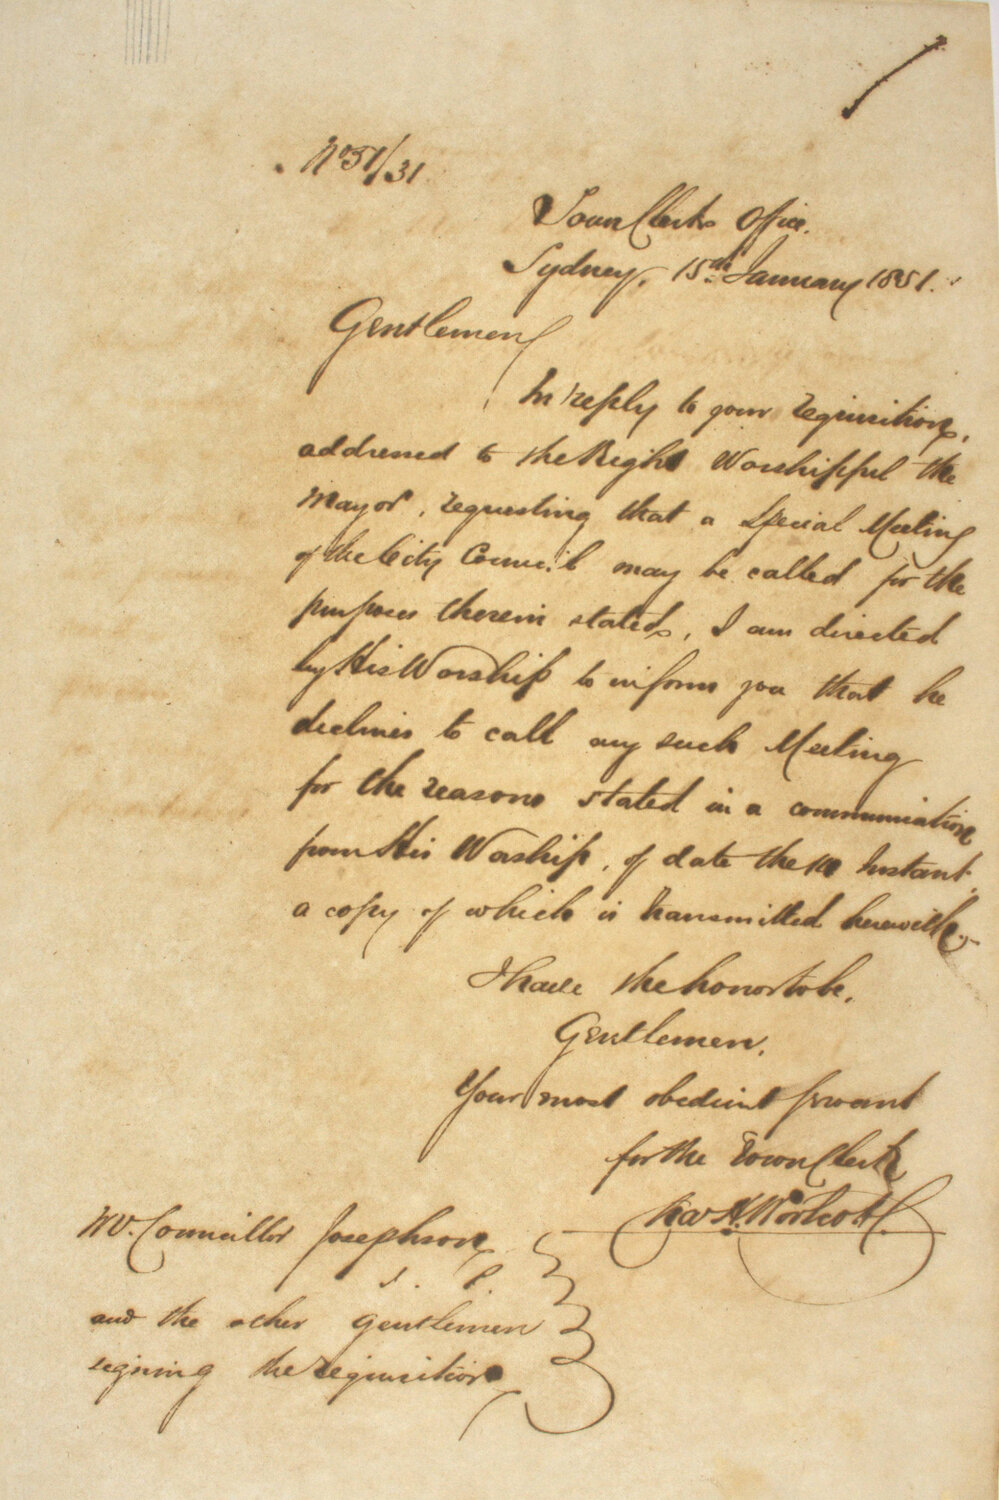 No 51/31
Town Clerks Office.
Sydney, 15th January 1851.
Gentlemen
In reply to your requisition,
addressed to the Right Worshipful the
Mayor, requesting that a Special Meeting
of the City Council may be called for the
purposes therein stated, I am directed
by His Worship to inform you that he
declines to call any such Meeting
for the reasons stated in a communication
from His Worship, of date the Instant
a copy of which is transmitted herewith.
I have the honor to be,
Gentlemen,
Your most obedient servant
for the Town Clerk
Chas H. Woolcott
Councillor Josephson
J. P.
and the other gentlemen
signing the requisition